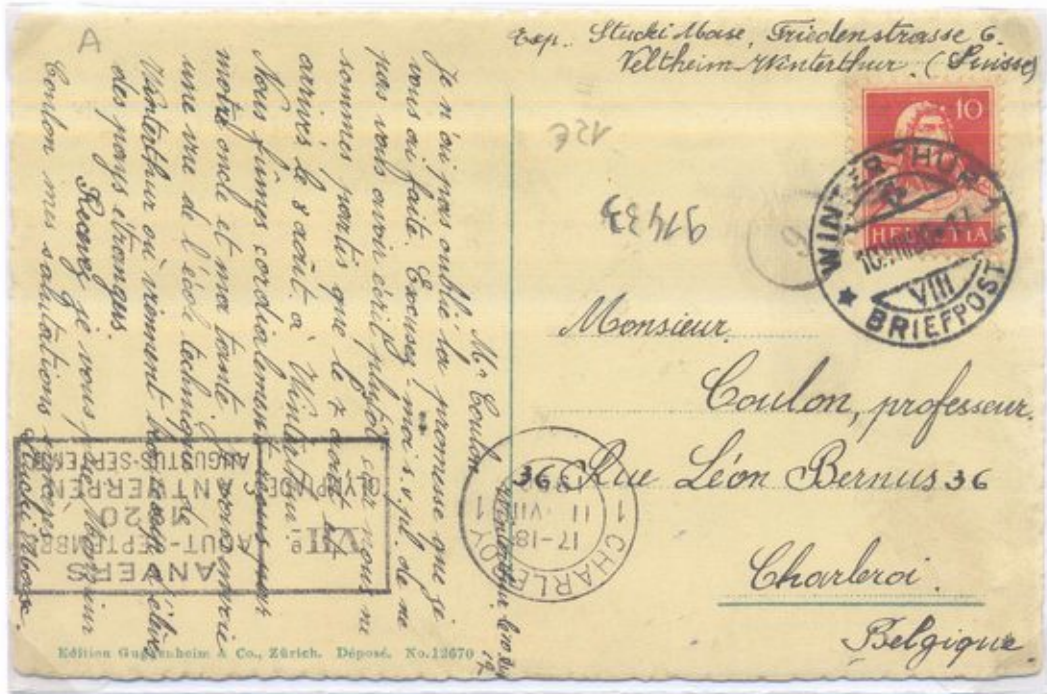 A
Exp. Stucki Moïse, Friedenstrasse 6.
Veltheim-Winterthur. (Suisse)
10
HELVETIA
WINTERTHUR 1
VIII
BRIEFPOST
12€
91433
9
Monsieur
Coulon, professeur.
36 Rue Léon Bernus 36
Charleroi.
Belgique
1 CHARLEROY 1
17-18
11 VIII
Winterthur
Mr Coulon
Je n'ai pas oublié la promesse que je
vous ai faite. Excusez-moi s.v.pl. de ne
pas vous avoir écrit plus tôt car nous ne
sommes partis que le 7 août et
arrivés le 8 août à Winterthur.
Nous fûmes cordialement reçus par
notre oncle et ma tante. J'
une vue de l'école technique de
Winterthur où viennent d'élèves
des pays étrangers
Recevez je vous prie Monsieur
Coulon mes salutations
Stucki Moïse
VIIe
OLYMPIADE
ANVERS
AOUT-SEPTEMBRE
1920
ANTWERPEN
AUGUSTUS-SEPTEMB
Edition Guggenheim & Co., Zürich. Déposé. No. 12670